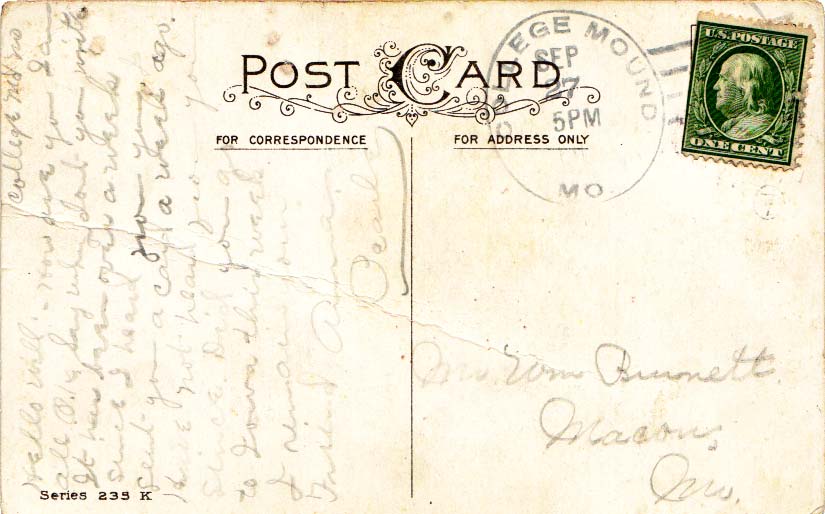 POST CARD
FOR CORRESPONDENCE
FOR ADDRESS ONLY
COLLEGE MOUND
SEP
27
5PM
MO.
U.S. POSTAGE
ONE CENT
College Md Mo
Hello Will - How are you I am
all O.K. Say why don't you write
It has been over a week
since I heard from you
send you a card a week ago.
have not heard from you
since. Did you go
to town this week
I remain your
Friend
Pearl
Mr. Wm Burnett.
Macon,
Mo.
Series 235 K